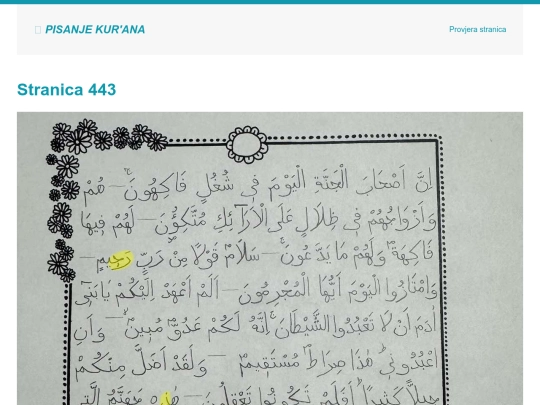 PISANJE KUR'ANA
Provjera stranica
Stranica 443
إِنَّ أَصْحَابَ الْجَنَّةِ الْيَوْمَ فِي شُغُلٍ فَاكِهُونَ — هُمْ
وَأَزْوَاجُهُمْ فِي ظِلَالٍ عَلَى الْأَرَائِكِ مُتَّكِؤُنَ — لَهُمْ فِيهَا
فَاكِهَةٌ وَلَهُمْ مَا يَدَّعُونَ — سَلَامٌ قَوْلًا مِنْ رَبٍّ رَحِيمٍ —
وَامْتَازُوا الْيَوْمَ أَيُّهَا الْمُجْرِمُونَ — أَلَمْ أَعْهَدْ إِلَيْكُمْ يَابَنِي
آدَمَ أَنْ لَا تَعْبُدُوا الشَّيْطَانَ إِنَّهُ لَكُمْ عَدُوٌّ مُبِينٌ — وَأَنِ
اعْبُدُونِي هَذَا صِرَاطٌ مُسْتَقِيمٌ — وَلَقَدْ أَضَلَّ مِنْكُمْ
جِبِلًّا كَثِيرًا أَفَلَمْ تَكُونُوا تَعْقِلُونَ — هَذِهِ جَهَنَّمُ الَّتِي